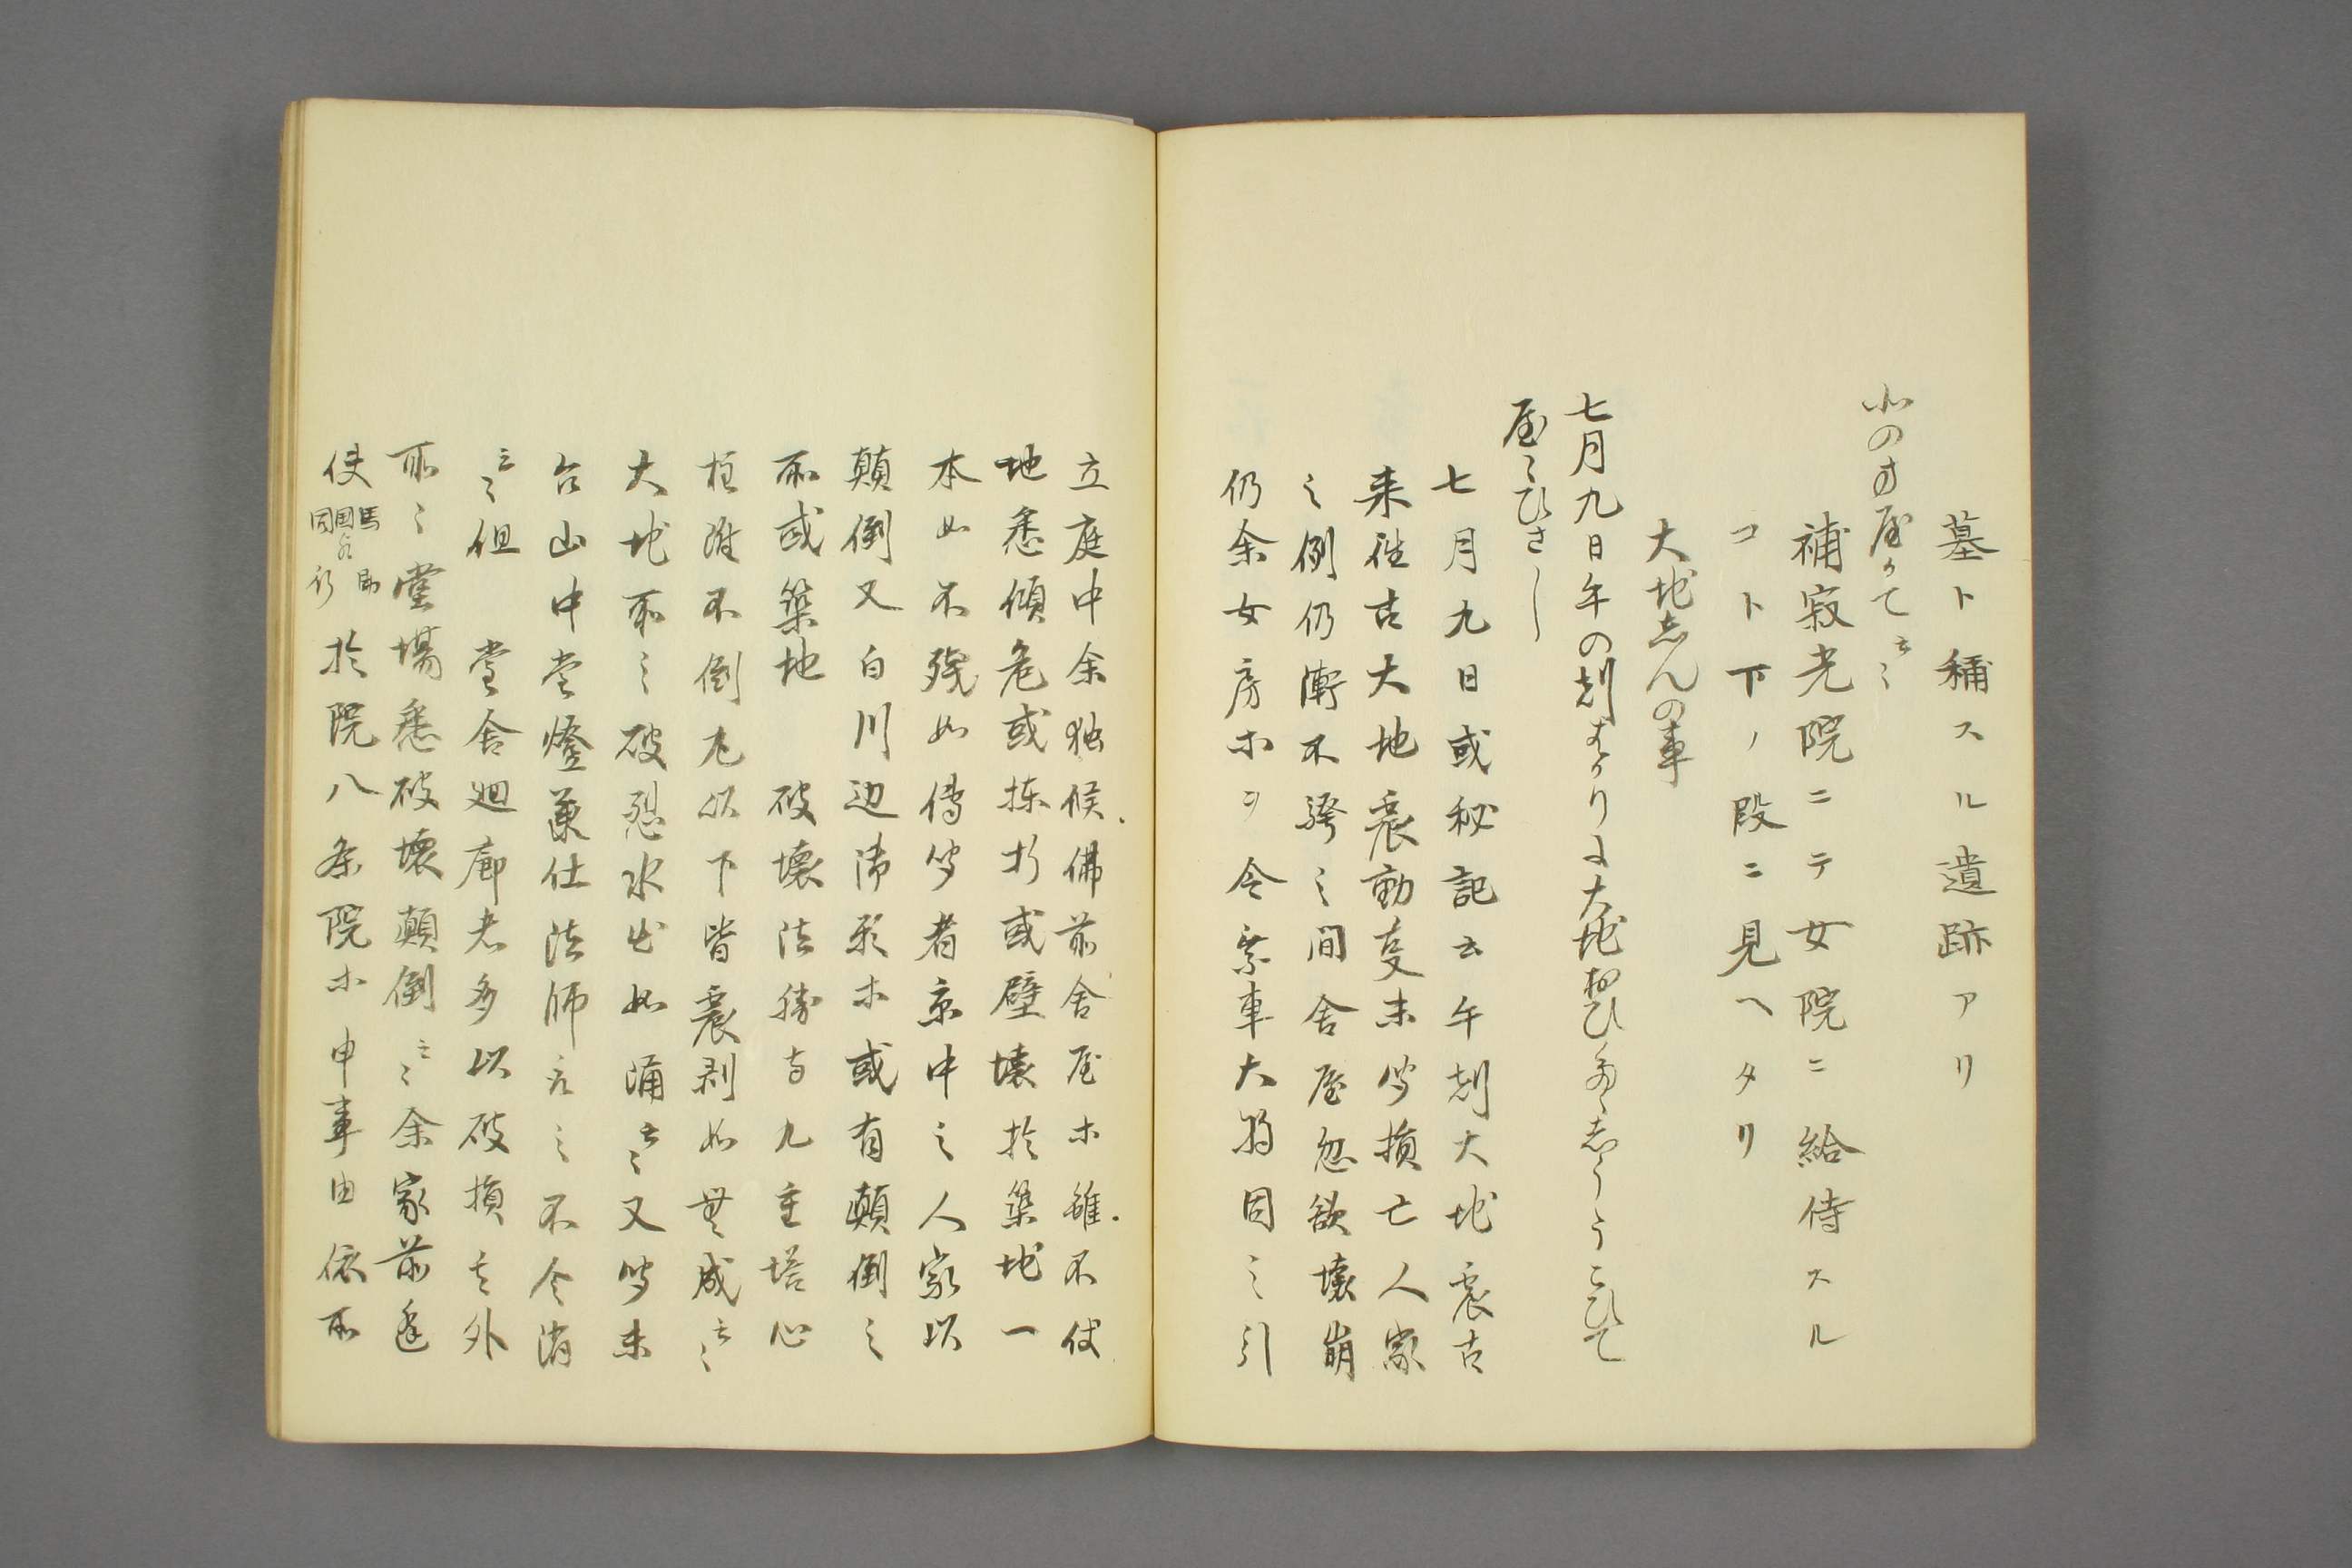 墓ト稱スル遺跡アリ
北のす屋うて云〻
補寂光院ニテ女院ニ給侍スル
コト下ノ段ニ見ヘタリ
大地志んの事
七月九日午の刻はかりに大地おひたゝしううこひて
屋〻ひさし
七月九日或秘記云午刻大地震古
来往古大地震動吏未聞損亡人家
之例仍漸不騒之間舎屋忽欲壊崩
仍余女房ホヲ令乗車大将因之引
立庭中余独候佛前舎屋ホ雖不伏
地悉傾危或棟折或壁壊於築地一
本如不残如傳聞者京中之人家以
顛倒又白川辺御願ホ或有顛倒之
所或築地　破壊法勝寺九重塔心
柱雖不倒瓦以下皆震剥如無成云〻
大地所〻破裂水出如涌云〻又聞未
台山中堂燈爇仕法師力之不令消
云〻但　堂舎廻廊者多以破損其外
所〻堂場悉破壊顛倒云〻余家前遣
使　於院八条院ホ申事由依所